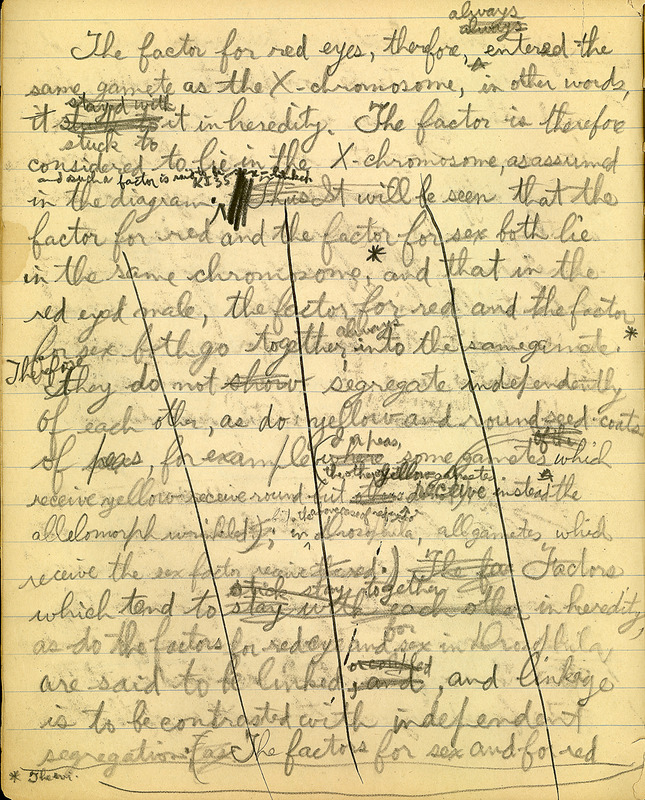 always
always
The factor for red eyes, therefore, entered the
same gamete as the X-chromosome, in other words,
stayed with
it stuck to it in heredity. The factor is therefore
stuck to
considered to lie in the X-chromosome, as assumed
and such a factor is said to be sex-linked
in the diagram. Thus It will be seen that the
factor for red and the factor for sex both lie
*
in the same chromosome, and that in the
red eyed male, the factor for red and the factor
always
for sex both go together, into the same gamete. *
Therefore
They do not show segregate independently
of each other, as do yellow and round seed-coats
of the
of peas, for example where some gametes which
In peas,
the other yellow gametes
receive yellow receive round but receive instead the
allelomorph wrinkled); in Drosophila, all gametes which
receive the sex factor receive red.) The fac Factors
stick stay together
which tend to stay with each other in heredity,
for
as do the factors for red eye and sex in Drosophila,
or coupled
are said to be linked, and, and linkage
is to be contrasted with independent
segregation. Fac The factors for sex and for red
*